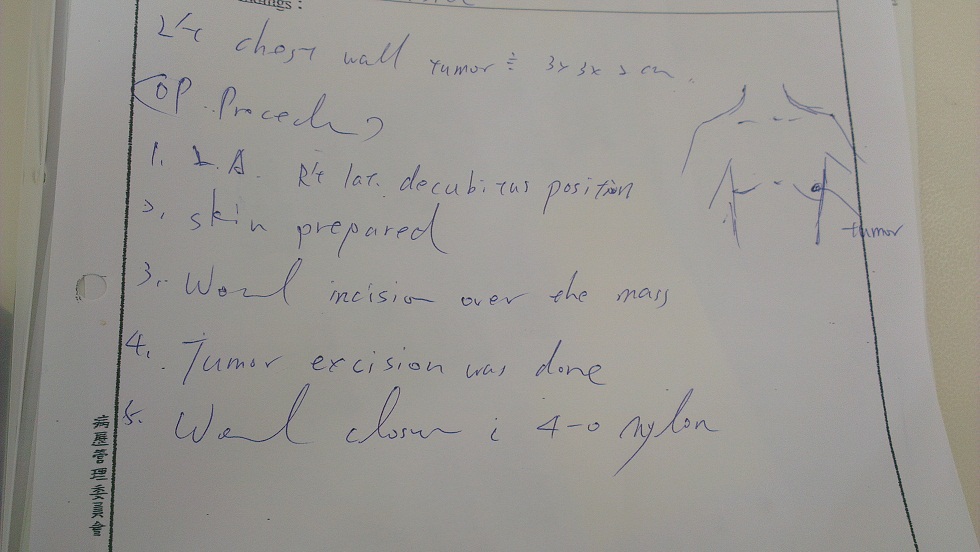 ndings :
L't chest wall tumor ≒ 3x3x2 cm.
<OP Procedure>
1. L.A. R't lat. decubitus position
2. skin prepared
3. Wound incision over the mass
4. Tumor excision was done
5. Wound closure c 4-0 nylon
tumor
病歷管理委員會